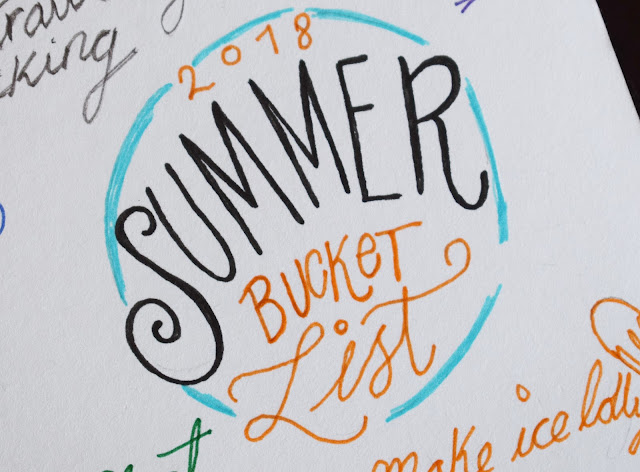 2018
SUMMER
BUCKET
List
make ice lolly